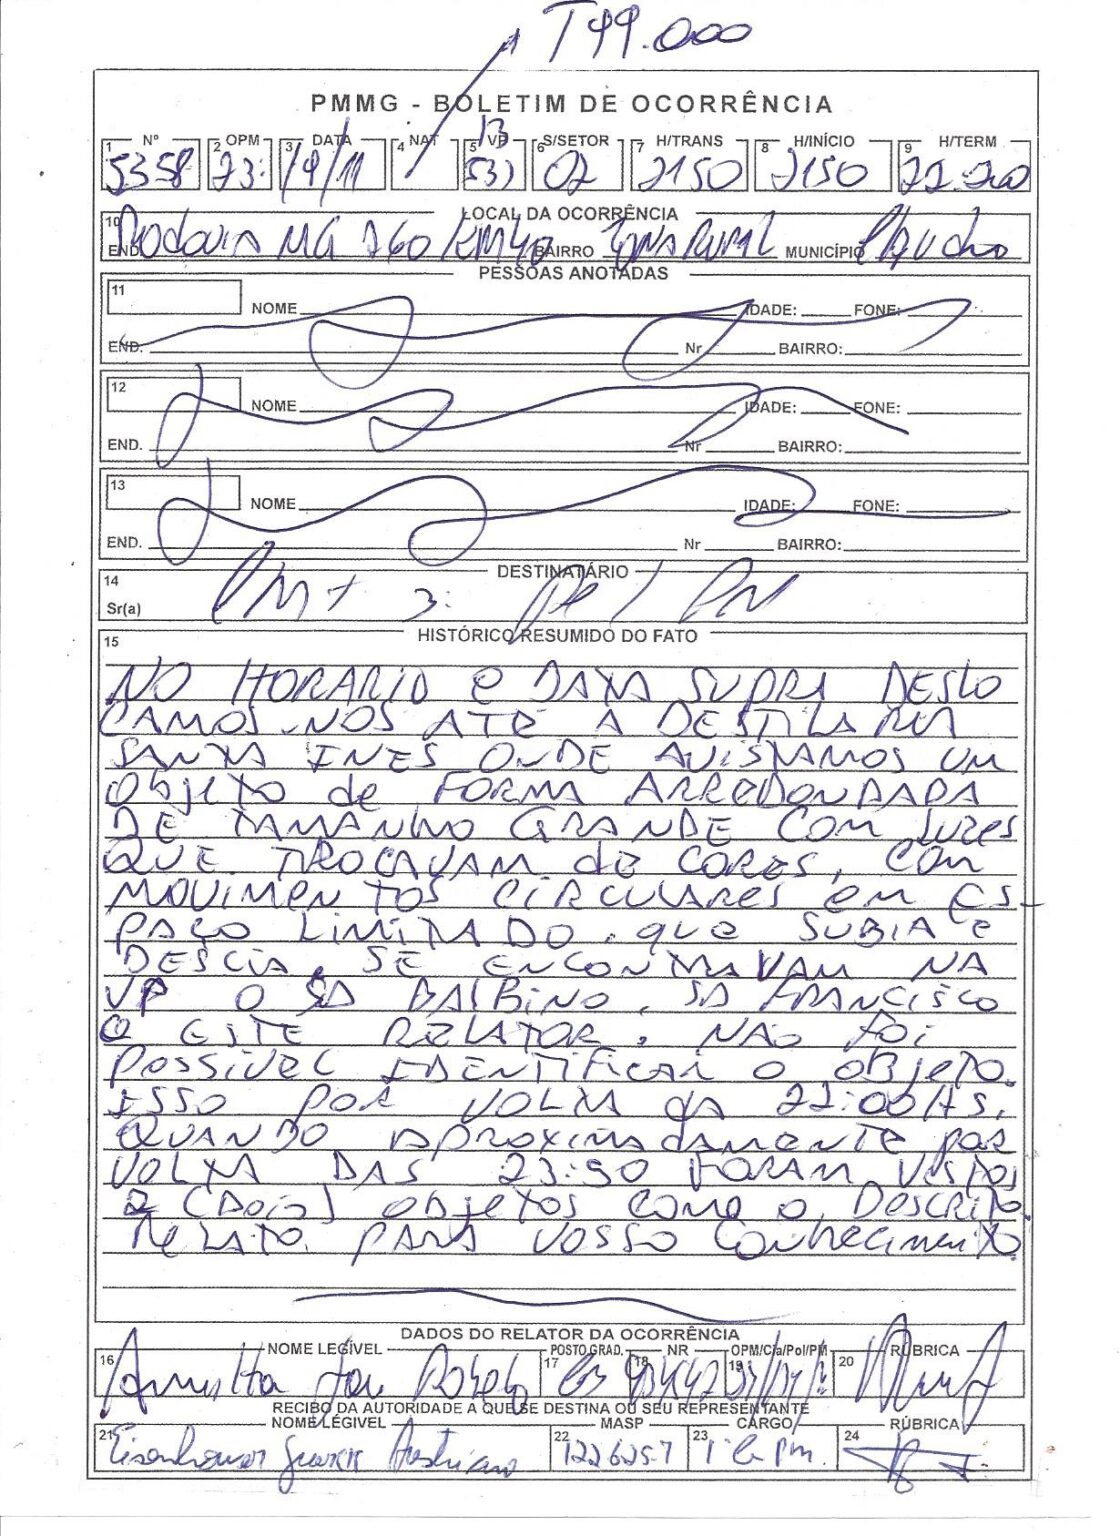 T99.000
PMMG - BOLETIM DE OCORRÊNCIA
1 Nº 2 OPM 3 DATA 4 NAT 5 VP 6 S/SETOR 7 H/TRANS 8 H/INÍCIO 9 H/TERM
5358 23: 02 2150 2150
LOCAL DA OCORRÊNCIA
10 END. Rodovia MG 260/KM40 BAIRRO ZONA RURAL MUNICÍPIO Claudio
PESSOAS ANOTADAS
11 NOME IDADE: FONE:
END. Nr BAIRRO:
12 NOME IDADE: FONE:
END. Nr BAIRRO:
13 NOME IDADE: FONE:
END. Nr BAIRRO:
DESTINATÁRIO
14 Sr(a)
HISTÓRICO RESUMIDO DO FATO
15
NO HORARIO e DATA SUPRA DESLO
CAMOS-NOS ATÉ A DESTILARIA
SANTA INES ONDE AVISTAMOS UM
OBJETO de FORMA ARREDONDADA
DE TAMANHO GRANDE COM LUZES
QUE TROCAVAM de CORES, COM
MOVIMENTOS CIRCULARES em ES-
PAÇO LIMITADO. que SUBIA E
DESCIA, SE ENCONTRAVAM NA
VP O SD BALBINO, SD FRANCISCO
e ESTE RELATOR. NÃO FOI
POSSÍVEL IDENTIFICAR O OBJETO.
ISSO POR VOLTA DA 22:00HS.
QUANDO APROXIMADAMENTE POR
VOLTA DAS 23:50 FORAM VISTOS
2 (Dois) OBJETOS COMO O DESCRITO.
RELATO PARA VOSSO CONHECIMENTO.
DADOS DO RELATOR DA OCORRÊNCIA
NOME LEGÍVEL POSTO GRAD. NR OPM/Cia/Pol/PM RÚBRICA
16 17 18 19 20
RECIBO DA AUTORIDADE A QUE SE DESTINA OU SEU REPRESENTANTE
NOME LEGIVEL MASP CARGO RÚBRICA
21 Eisenhower 22 1226257 23 24